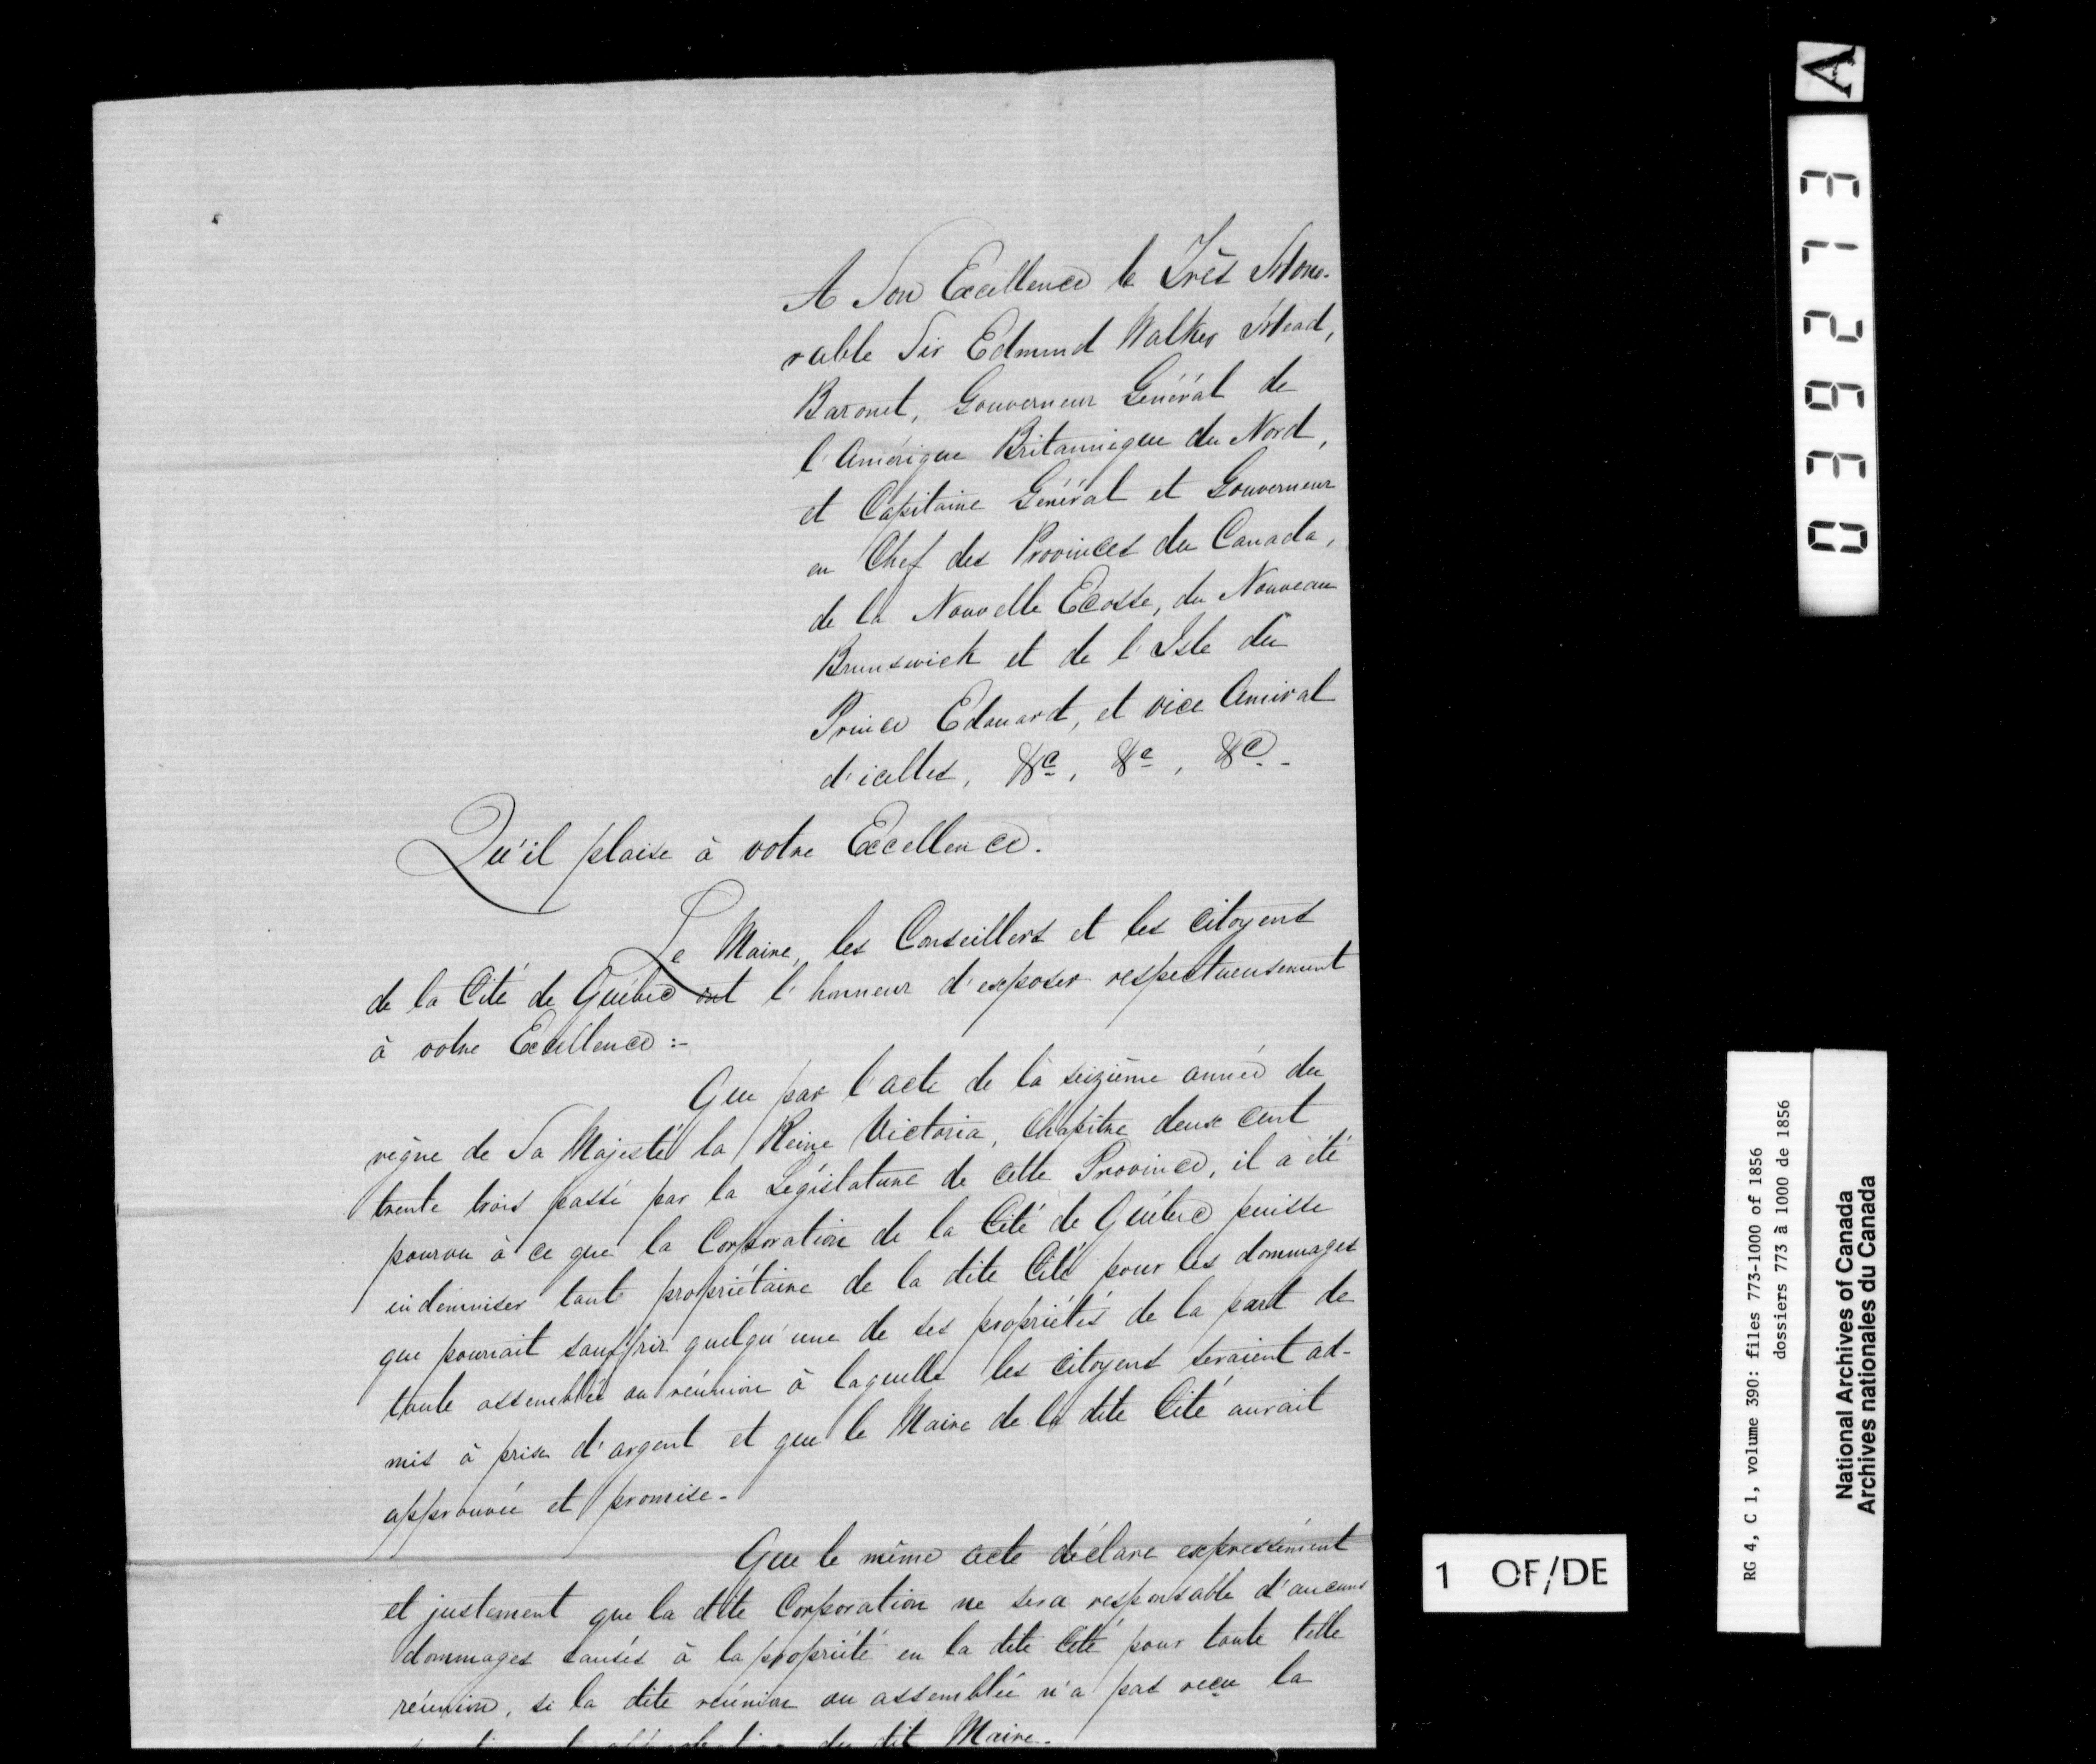 A Son Excellence le Très Hono-
rable Sir Edmund Walker Head,
Baronet, Gouverneur Général de
l'Amérique Britannique du Nord,
et Capitaine Général et Gouverneur
en Chef des Provinces du Canada,
de la Nouvelle Ecosse, du Nouveau
Brunswick et de l'Isle du
Prince Edouard, et vice Amiral
d'icelles, &c, &c, &c.-
Qu'il plaise à votre Excellence.
Le Maire, les Conseillers et les Citoyens
de la Cité de Québec ont l'honneur d'exposer respectueusement
à votre Excellence:-
Que par l'acte de la seizième année du
règne de Sa Majesté la Reine Victoria, Chapitre deux cent
trente trois passé par la Législature de cette Province, il a été
pourvu à ce que la Corporation de la Cité de Québec puisse
indemniser tout propriétaire de la dite Cité pour les dommages
que pourrait souffrir quelqu'une de ses propriétés de la part de
toute assemblée ou réunion à laquelle les citoyens seraient ad-
mis à prix d'argent et que le Maire de la dite Cité aurait
approuvée et promise.-
Que le même acte déclare expressément
et justement que la dite Corporation ne sera responsable d'aucuns
dommages causés à la propriété en la dite Cité pour toute telle
réunion, si la dite réunion ou assemblée n'a pas reçu la
du dit Maire.-
A
031263
1 OF/DE
RG 4, C 1, volume 390: files 773-1000 of 1856
dossiers 773 à 1000 de 1856
National Archives of Canada
Archives nationales du Canada